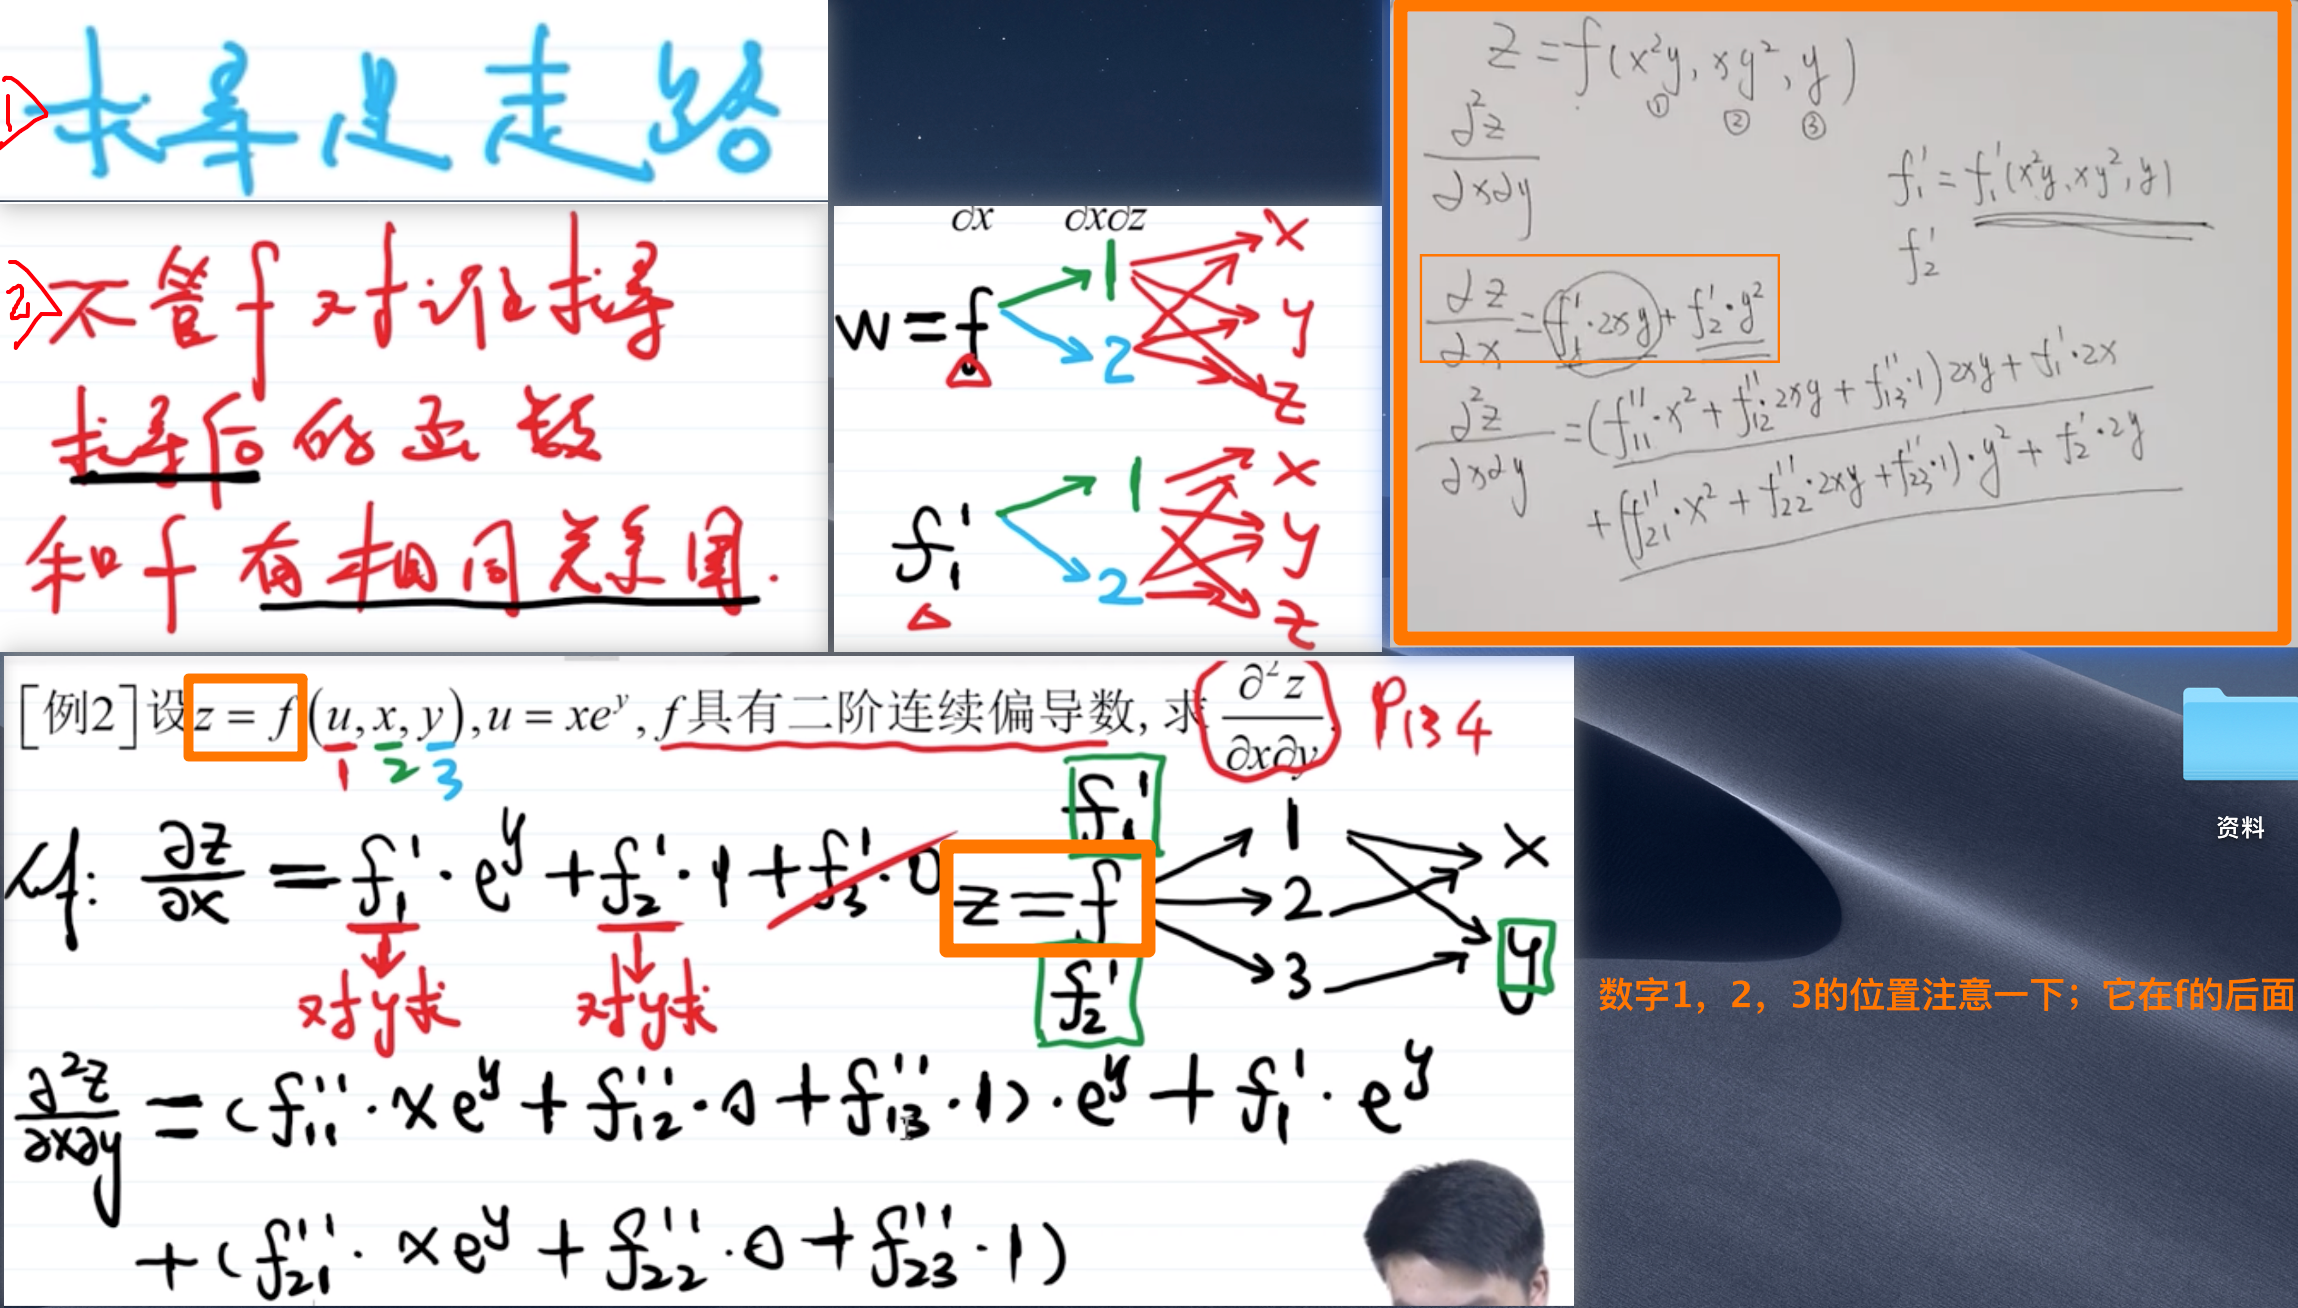 ① 求导是走路
② 不管f对谁求导
求导后的函数
和f有相同关系图.
∂x ∂x∂z
w = f 1 2 x y z
f₁' 1 2 x y z
z = f(x²y, xy², y)
① ② ③
∂²z/∂x∂y
f₁' = f₁'(x²y, xy², y)
f₂'
∂z/∂x = f₁'·2xy + f₂'·y²
∂²z/∂x∂y = (f₁₁''·x² + f₁₂''·2xy + f₁₃''·1)2xy + f₁'·2x
+ (f₂₁''·x² + f₂₂''·2xy + f₂₃''·1)·y² + f₂'·2y
[例2]设z = f(u, x, y), u = xeʸ, f具有二阶连续偏导数, 求 ∂²z/∂x∂y. P134
1 2 3
解: ∂z/∂x = f₁'·eʸ + f₂'·1 + f₃'·0
对y求 对y求
f₁'
z = f 1 2 3 x y
f₂'
∂²z/∂x∂y = (f₁₁''·xeʸ + f₁₂''·0 + f₁₃''·1)·eʸ + f₁'·eʸ
+ (f₂₁''·xeʸ + f₂₂''·0 + f₂₃''·1)
资料
数字1，2，3的位置注意一下；它在f的后面